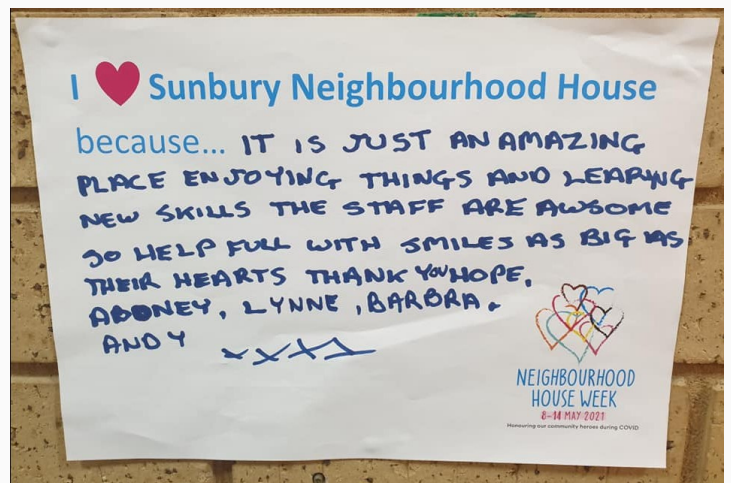 I ❤ Sunbury Neighbourhood House
because... IT IS JUST AN AMAZING
PLACE ENJOYING THINGS AND LEARNING
NEW SKILLS THE STAFF ARE AWSOME
SO HELP FULL WITH SMILES AS BIG AS
THEIR HEARTS THANK YOU HOPE,
, LYNNE, BARBRA &
ANDY XXXX
NEIGHBOURHOOD
HOUSE WEEK
8-14 MAY 2021
Honouring our community heroes during COVID